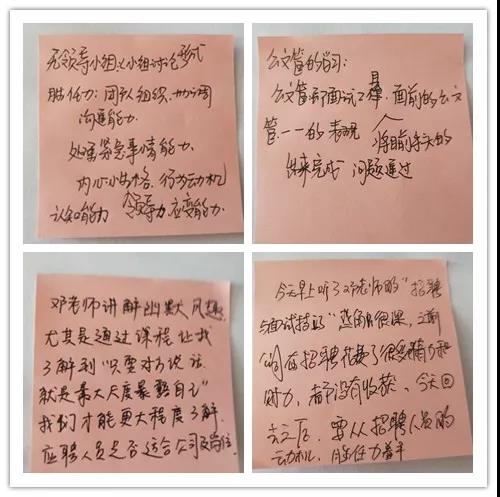 无领导小组以小组讨论形式
胜任力:团队组织,协调
沟通能力
处理紧急事情能力
内心小性格,行为动机
认知能力 领导力 应变能力
公文筐的学习:
公文筐示面试工具,面前的公文
筐一一的表现 将目前手头的
来完成 问题通过
邓老师讲解幽默风趣
尤其是通过课程让我
了解到“只要对方说话
就是最大尺度暴露自己”
我们才能更大程度了解
应聘人员是否适合公司及岗位
今天早上听了邓老师的“招聘
与面试技巧”这门课,之前
公司在招聘花费了很多精力和
财力,都没有收获,今天回
去之后,要从招聘人员的
动机,胜任力着手